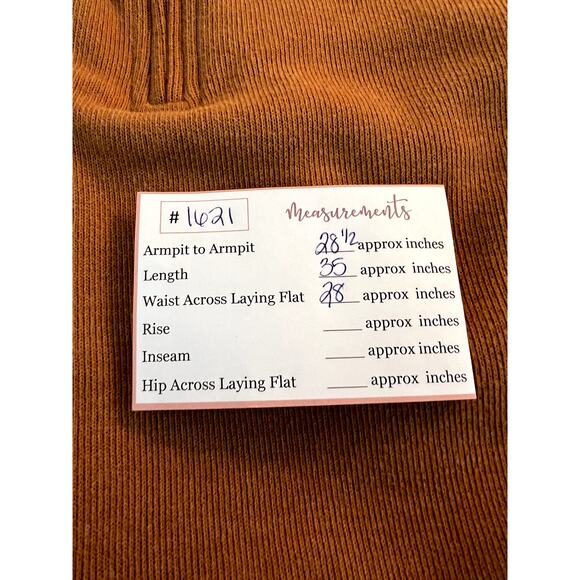 # 1621
Measurements
Armpit to Armpit 28 1/2 approx inches
Length 35 approx inches
Waist Across Laying Flat 28 approx inches
Rise ____ approx inches
Inseam ____ approx inches
Hip Across Laying Flat ____ approx inches